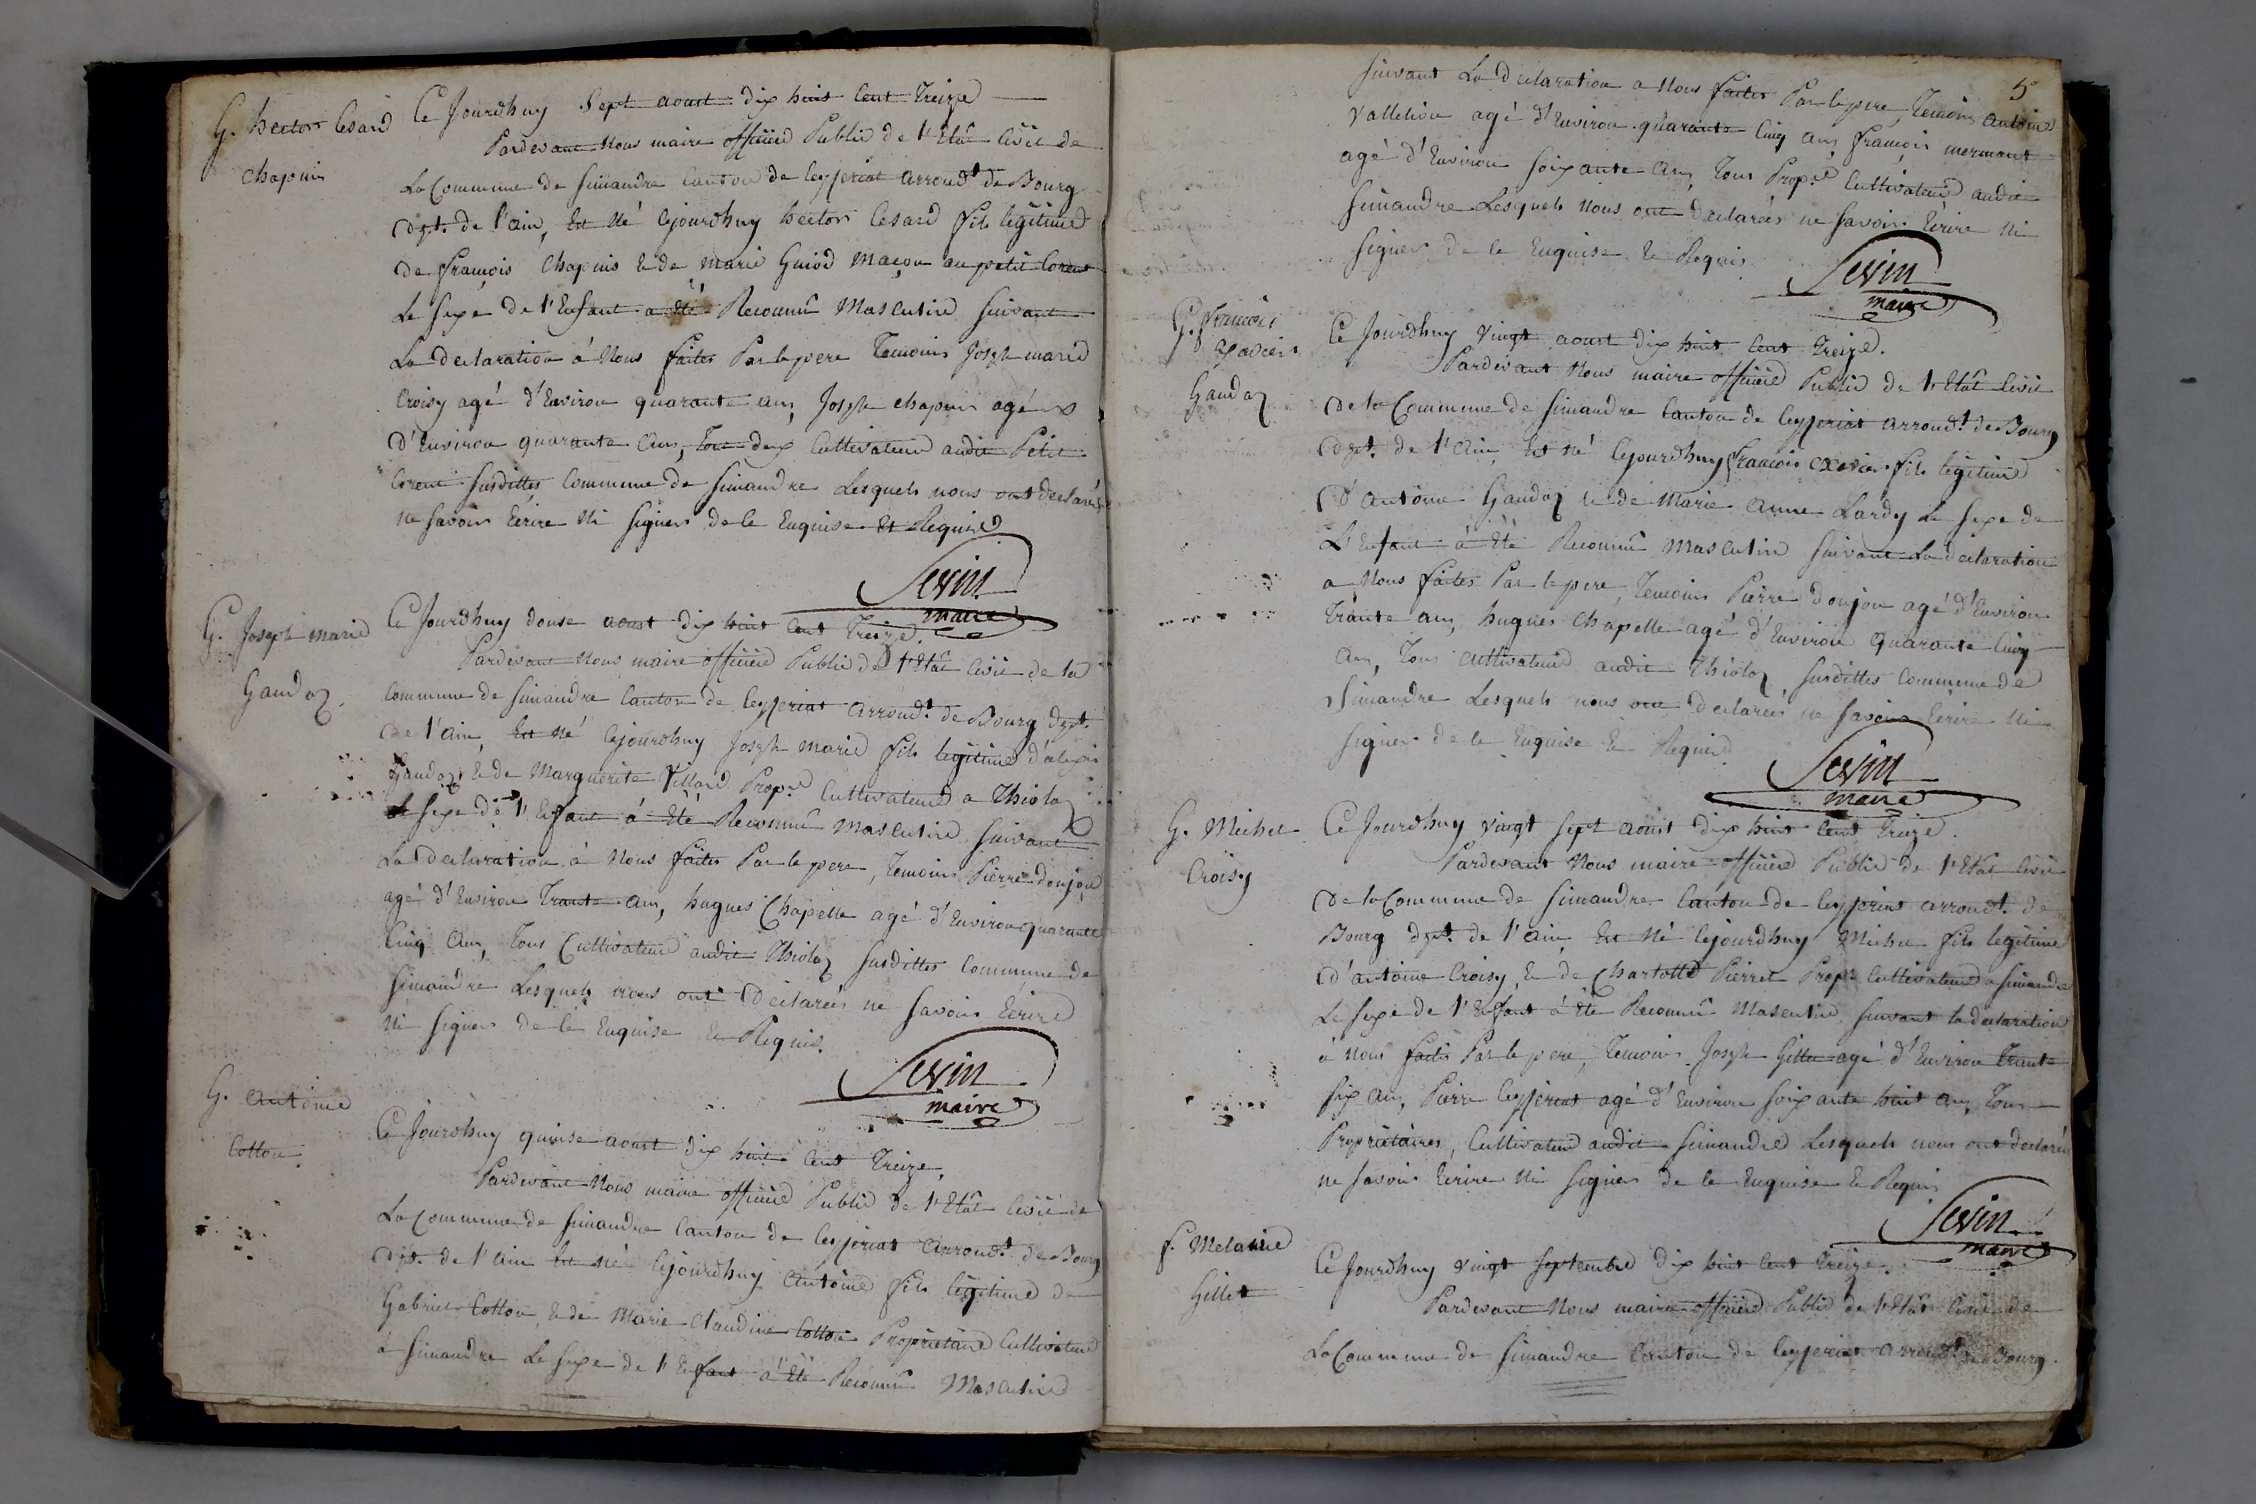 G. hector Cesard
chapuis
Ce Jourdhuy Sept aoust dix huis Cent Treize
Pardevant Nous maire officied Public de l'Etât Civil de
La Commune de Simandre Canton de Ceyseriat arrondt de Bourg
dept. de l'ain, Est Né Cejourdhuy hector Cesard fils legitime
de françois Chapuis & de marie Guiod Maçon au petit Corent
Le Sexe de l'Enfant a été Reconnû Masculin Suivant
La declaration à Nous faites Par le pere Temoins Joseph marie
Croisy agé d'Environ quarante ans, Joseph chapuis agé
d'Environ quarante ans, tout deux Cultivateur audit Petit
Corent Susdittes Commune de Simandre Lesquels nous ont declarés
ne Savoir Ecrire Ni Signer de le Enquise Et Requis
Sevin
maire
G. Joseph marie
Gandoz.
Ce Jourdhuy douse aoust dix huit Cent Treize.
Pardevant Nous maire officied Public de l'Etât Civil de la
Commune de Simandre Canton de Ceyseriat arrondt. de Bourg dept.
de l'ain, Est Né Cejourdhuy Joseph marie fils legitime d'alexis
Gandoz & de Marguerite Villard Propre Cultivateur a Thioloz
Le Sexe de l'Enfant à Eté Reconnû Masculin Suivant
La declaration à Nous faites Par le pere, Temoins Pierre donjon
agé d'Environ Trante ans, hugues Chapelle agé d'Environ quarante
Cinq ans, Tous Cultivateur audit Thioloz Susdittes Commune de
Simandre Lesquels nous ont Declarés ne Savoir Ecrire
Ni Signer de le Enquise & Requis.
Sevin
maire
G. Antoine
Cotton.
Ce Jourdhuy quinse aoust dix huit Cent Treize,
Pardevant Nous maire officied Public de l'Etât Civil de
La Commune de Simandre Canton de Ceyseriat arrondt. de Bourg
dept. de l'ain Est né Cejourdhuy Antoine fils legitime de
Gabriel Cotton, & de Marie Claudine Cotton Proprietaire Cultivateur
à Simandre Le Sexe de l'Enfant à Eté Reconnû Masculin
5
Suivant La declaration a Nous faites Par le pere, Temoins Antoine
Valletion agé d'Environ quarante Cinq ans, françois mermant
agé d'Environ Soixante ans, Tous Propre Cultivateur audit
Simandre Lesquels Nous ont declarés ne Savoir Ecrire Ni
Signer de le Enquise & Requis
Sevin
maire
G. françois
Xavier
Gandoz
Ce Jourdhuy Vingt aoust dix huit Cent Treize.
Pardevant Nous maire officied Public de l'Etât Civil
de la Commune de Simandre Canton de Ceyseriat arrondt. de Bourg
dept. de l'ain, Est né Cejourdhuy françois Exavier fils legitime
d'Antoine Gandoz & de Marie Anne Lardy Le Sexe de
L'Enfant à Eté Reconnû Masculin Suivant La declaration
a Nous faites Par le pere, Temoins Pierre donjon agé d'Environ
Trante ans, hugues Chapelle agé d'Environ quarante Cinq
ans, Tous Cultivateur audit Thioloz Susdittes Commune de
Simandre Lesquels nous ont declarés ne Savoir Ecrire Ni
Signer de le Enquise & Requis.
Sevin
maire
G. Michel
Croisy
Ce Jourdhuy Vingt Sept aoust dix huit Cent Treize.
Pardevant Nous maire officied Public de l'Etât Civil
de la Commune de Simandre Canton de Ceyseriat arrondt. de
Bourg dept. de l'ain, Est Né Cejourdhuy Michel fils legitime
d'antoine Croisy, & de Charlotte Pierret Propre Cultivateur a Simandre
Le Sexe de l'Enfant à Eté Reconnû Masculin Suivant la declaration
à Nous faites Par le pere, Temoins Joseph Gillet agé d'Environ Trante
Six ans, Pierre Ceyseriat agé d'Environ Soixante huit ans, Tous
Proprietaires, Cultivateur audit Simandre Lesquels nous ont declarés
ne Savoir Ecrire Ni Signer de le Enquise & Requis
Sevin
maire
f. Melanie
Gillet
Ce Jourdhuy Vingt Septembre dix huit Cent Treize.
Pardevant Nous maire officied Public de l'Etât Civil de
La Commune de Simandre Canton de Ceyseriat arrondt de Bourg